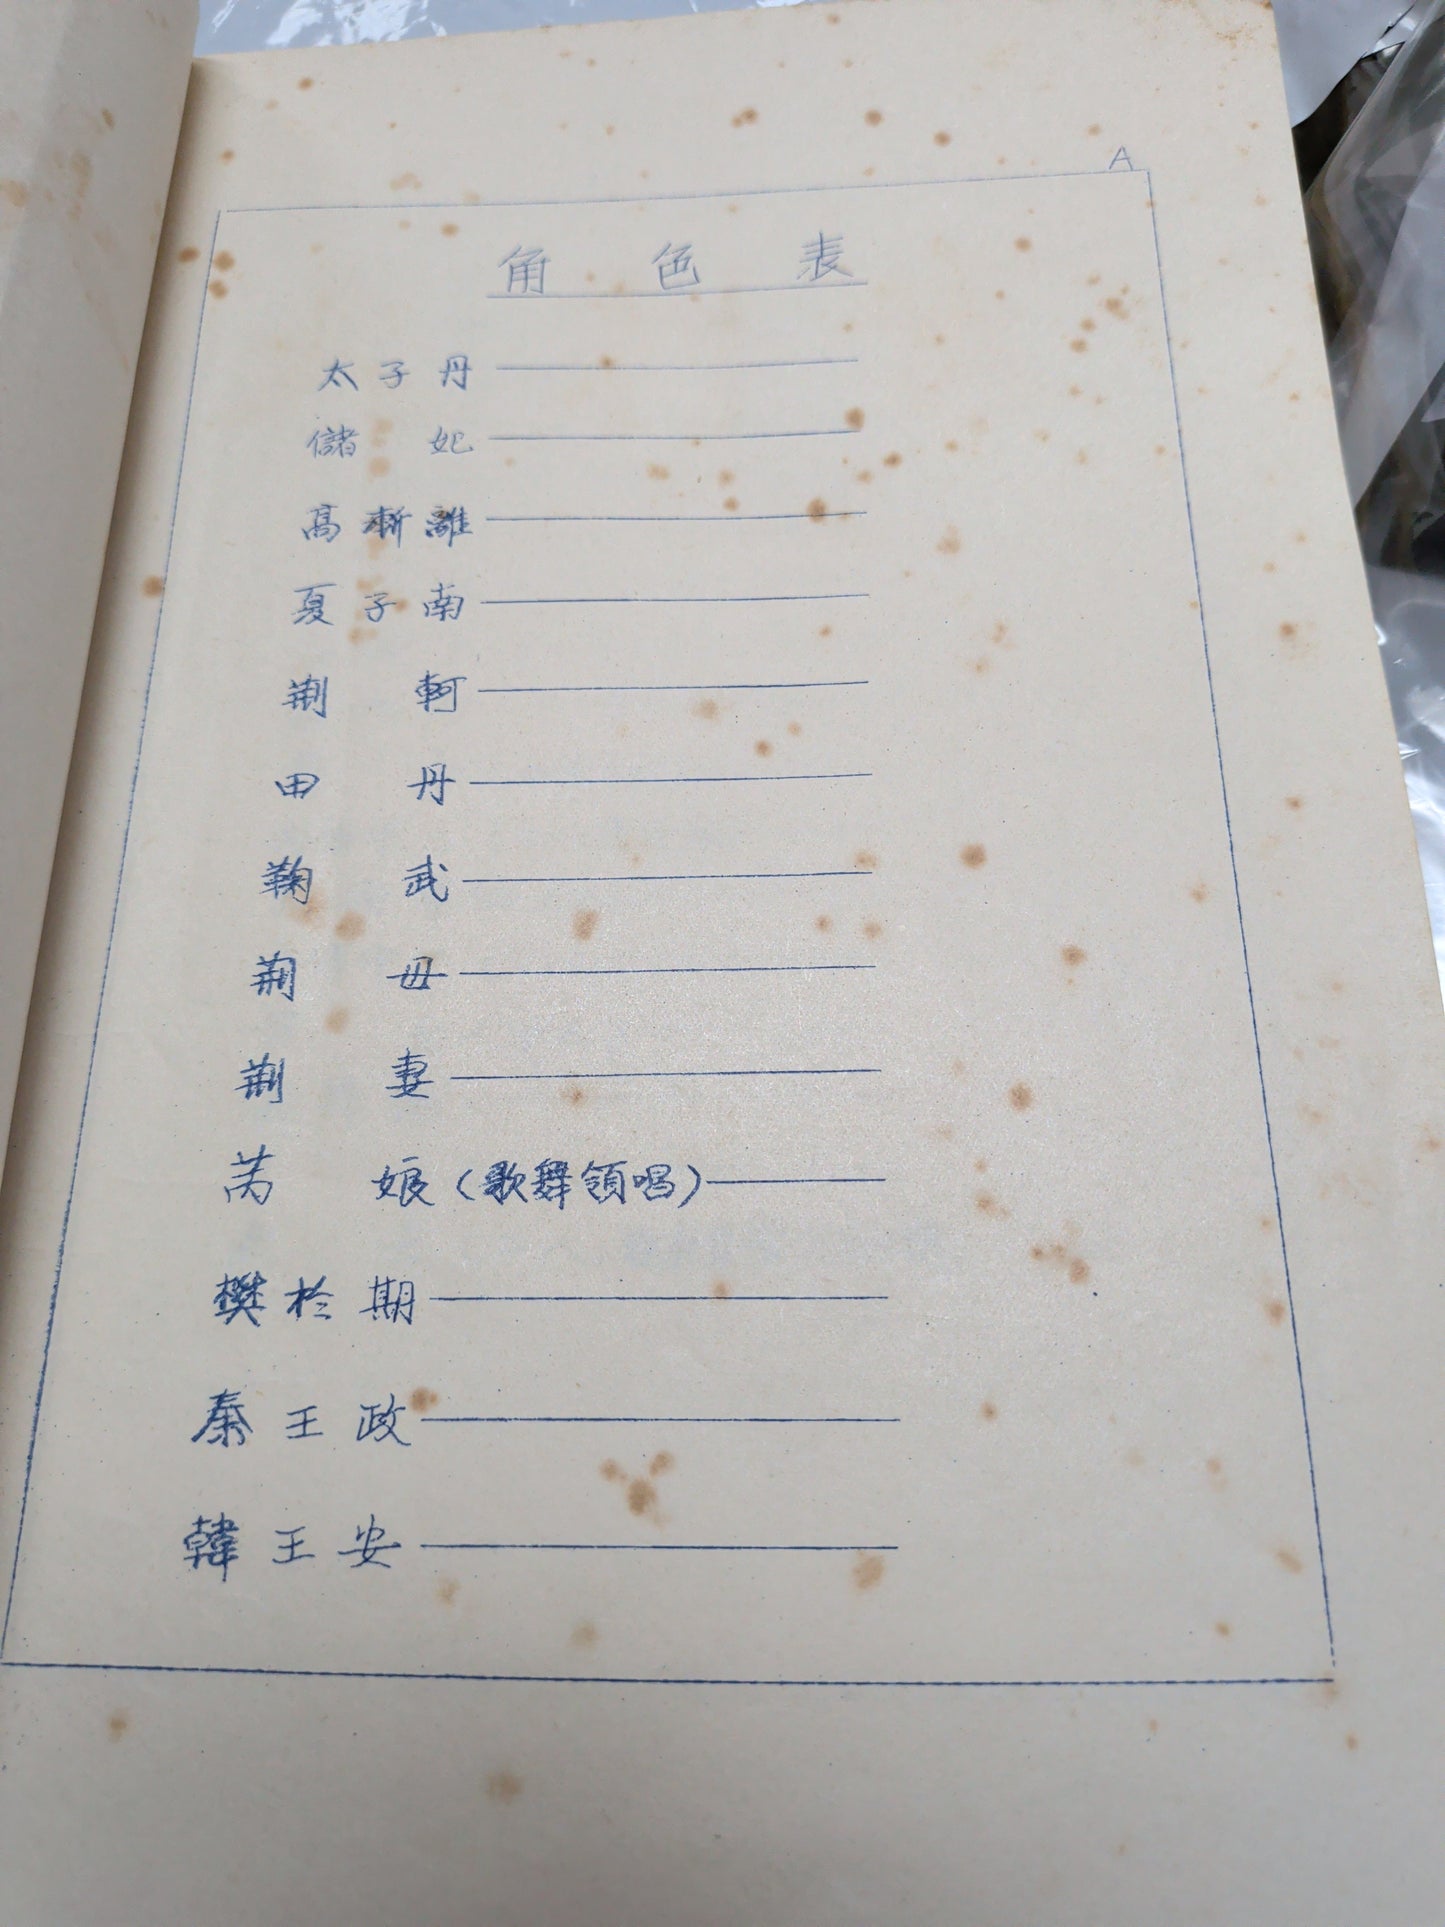 A
角色表
太子丹
儲妃
高漸離
夏子南
荆軻
田丹
鞠武
荆母
荆妻
娘（歌舞領唱）
樊於期
秦王政
韓王安